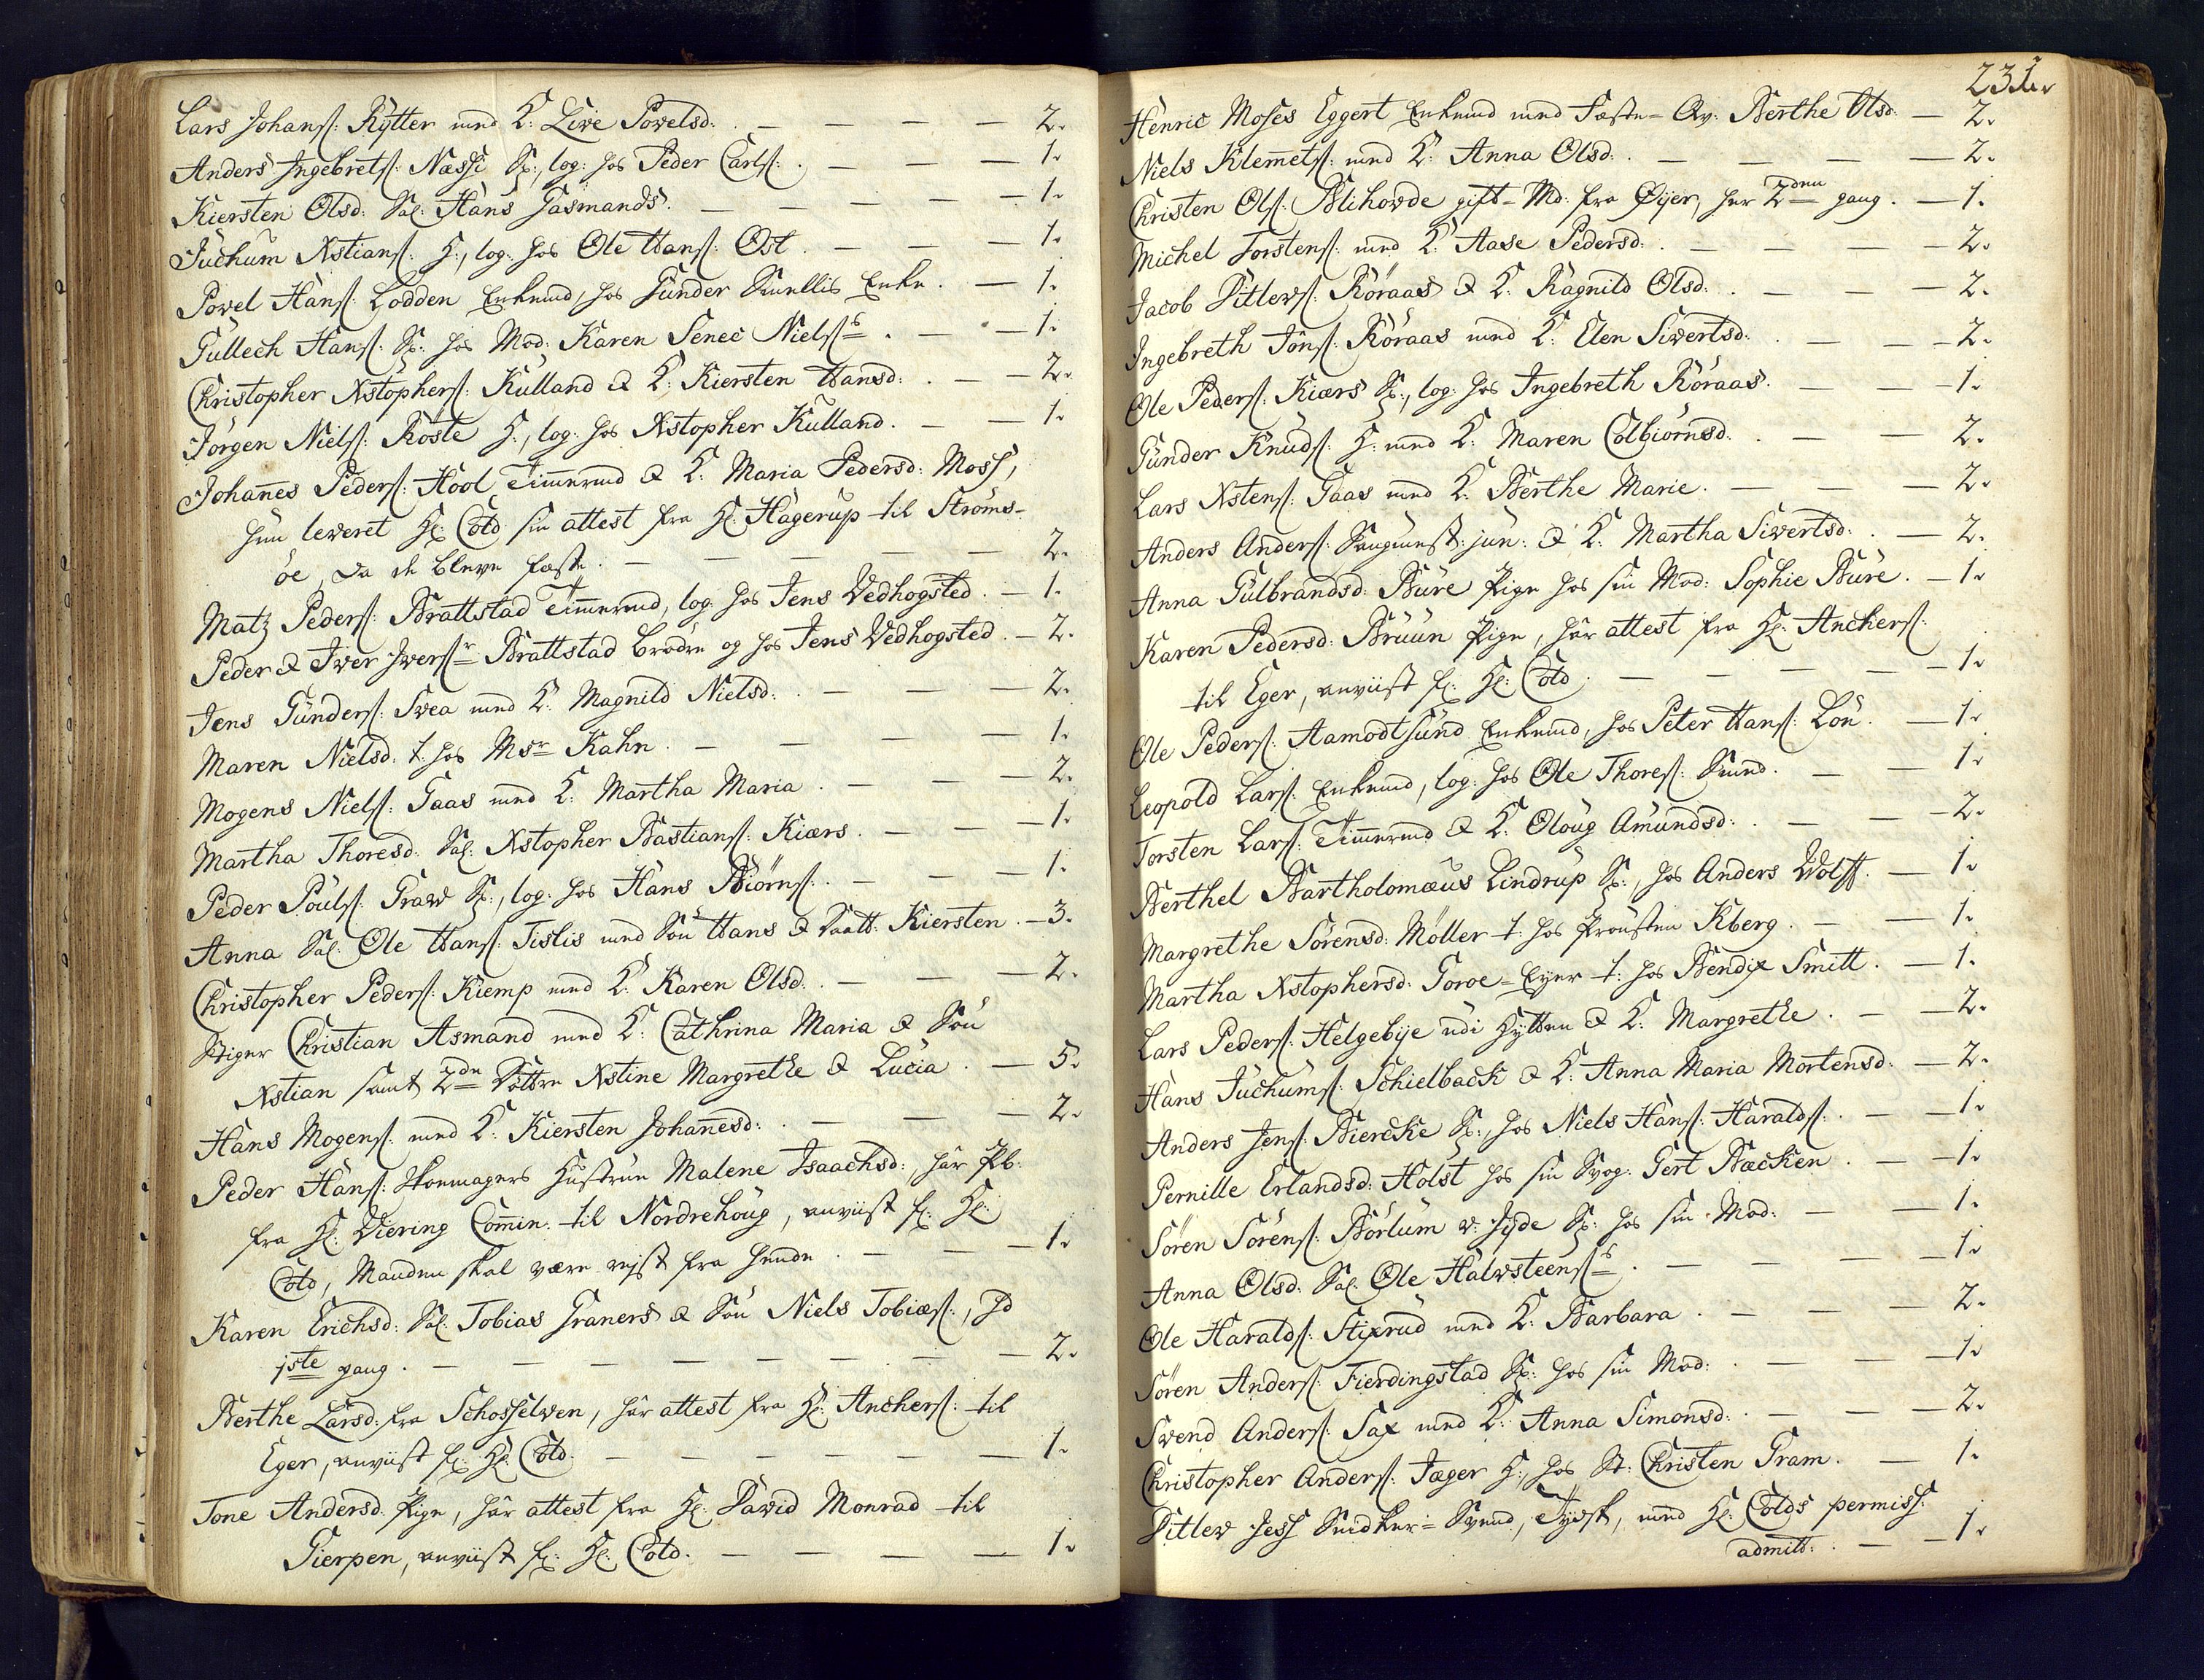 Lars Johans: Rytter med K: Live Povelsd: . — — — — 2.
Anders Ingebrets: Næssi S:, log: hos Peder Carls: . — — — 1.
Kiersten Olsd: Sal: Hans Gasmands. — — — — — 1.
Juchum Xstians: H:, log: hos Ole Hans: Ost . — — — 1.
Povel Hans: Lodden Enkemd, hos Gunder Smellis Enke . — 1.
Gullech Hans: S: hos Mod: Karen Senec Niels:s . — — 1.
Christopher Xstophers: Kulland & K: Kiersten Hansd: . — — 2.
Jörgen Niels: Röste H:, log: hos Xstopher Kulland. — — 1.
Johannes Peders: Hool Timmermd & K: Maria Pedersd: Moss,
hun leveret Hr: Cold sin attest fra Hr: Hagerup til Ströms-
öe, da de bleve fæste. — — — — 2.
Matz Peders: Brattstad Timmermd, log: hos Jens Vedhogsted . — 1.
Peder & Iver Ivers:r Brattstad brødre og hos Jens Vedhogsted . — 2.
Jens Gunders: Svea med K: Magnild Nielsd: . — — — 2.
Maren Nielsd: t: hos Msr Kahn . — — — — 1.
Mogens Niels: Gaas med K: Martha Maria . — — — 2.
Martha Thoresd: Sal: Xstopher Bastians: Kiærs . — — — 1.
Peder Pouls: Graw S:, log: hos Hans Biörns: . — — — 1.
Anna Sal: Ole Hans: Tislis med Sön Hans & Datt: Kiersten . — 3.
Christopher Peders: Kiemp med K: Karen Olsd: . — — — 2.
Stiger Christian Asmand med K: Cathrina Maria & Sön
Xstian samt 2de Döttre Xstine Margrethe & Lucia . — 5.
Hans Mogens: med K: Kiersten Johannesd: . — — — 2.
Peder Hans: Skomagers Hustrue Malene Isaachsd:, har Pb:
fra Hr: Viering Commin: til Nordrehoug, anviist fr: Hr:
Cold, Manden skal være rejst fra hende . — — — 1.
Karen Erichsd: Sal: Tobias Graners & Sön Niels Tobiæs:,
1ste gang . — — — — — — — 2.
Berthe Larsd: fra Schosselven, har attest fra Hr: Anchers: til
Eger, anviist fr: Hr: Cold. — — — — — 1.
Tone Andersd: Pige, har attest fra Hr: David Monrad til
Gierpen, anviist fr: Hr: Cold. — — — — 1.
231
Henric Moses Eggert Enkemd med Fæste-Qv: Berthe Olsd: — 2.
Niels Klemmets: med K: Anna Olsd: . — — — — 2.
Christen Ols: Blihovde gift-Md: fra Øijer, her 2den gang . — 1.
Michel Torstens: med K: Aase Pedersd: . — — — — 2.
Jacob Ditlevs: Röraas & K: Ragnild Olsd: . — — — 2.
Ingebreth Jöns: Röraas med K: Elen Sivertsd: . — — — 2.
Ole Peders: Kiærs S:, log: hos Ingebreth Röraas. — — — 1.
Gunder Knuds: H: med K: Maren Colbiörnsd: . — — 2.
Lars Xstens: Gaas med K: Berthe Marie . — — — 2.
Anders Anders: jun: & K: Martha Sivertsd: . — 2.
Anna Gulbrandsd: Bure Pige hos sin Mod: Sophie Bure . — 1.
Karen Pedersd: Bruun Pige, har attest fra Hr: Anchers:
til Eger, anviist fr: Hr: Cold . — — — — 1.
Ole Peders: Aamodtsund Enkemd, hos Peter Hans: Lön. — 1.
Leopold Lars: Enkemd, log: hos Ole Thores: Smed . — — 1.
Torsten Lars: Timmermd & K: Oloug Amundsd: . — — 2.
Berthel Bartholomæus Lindrup S:, hos Anders Wolff. — 1.
Margrethe Sörensd: Möller t: hos Provsten Kberg . — — 1.
Martha Xstophersd: Goroe-Eyer t: hos Bendix Smitt . — 1.
Lars Peders: Helgebije udi Hytten & K: Margrethe . — — 2.
Hans Juchums: Schielbach & K: Anna Maria Mortensd: — 2.
Anders Jens: Biercke S:, hos Niels Hans: Haralds: . — — 1.
Pernille Erlandsd: Holst hos sin Svog: Gert Bæcken . — — 1.
Sören Sörens: Börlum v: Jyde S: hos sin Mod: — — 1.
Anna Olsd: Sal: Ole Halvsteens:s . — — — — 1.
Ole Haralds: Stixrud med K: Barbara . — — — 2.
Sören Anders: Fierdingstad S: hos sin Mod: . — — — 1.
Svend Anders: Sax med K: Anna Simonsd: . — — — 2.
Christopher Anders: Jæger H:, hos St: Christen Gram . — 1.
Ditlev Jess Snidker-Svend, Tydsk, med Hr: Colds permiss:
admitt: . — — 1.